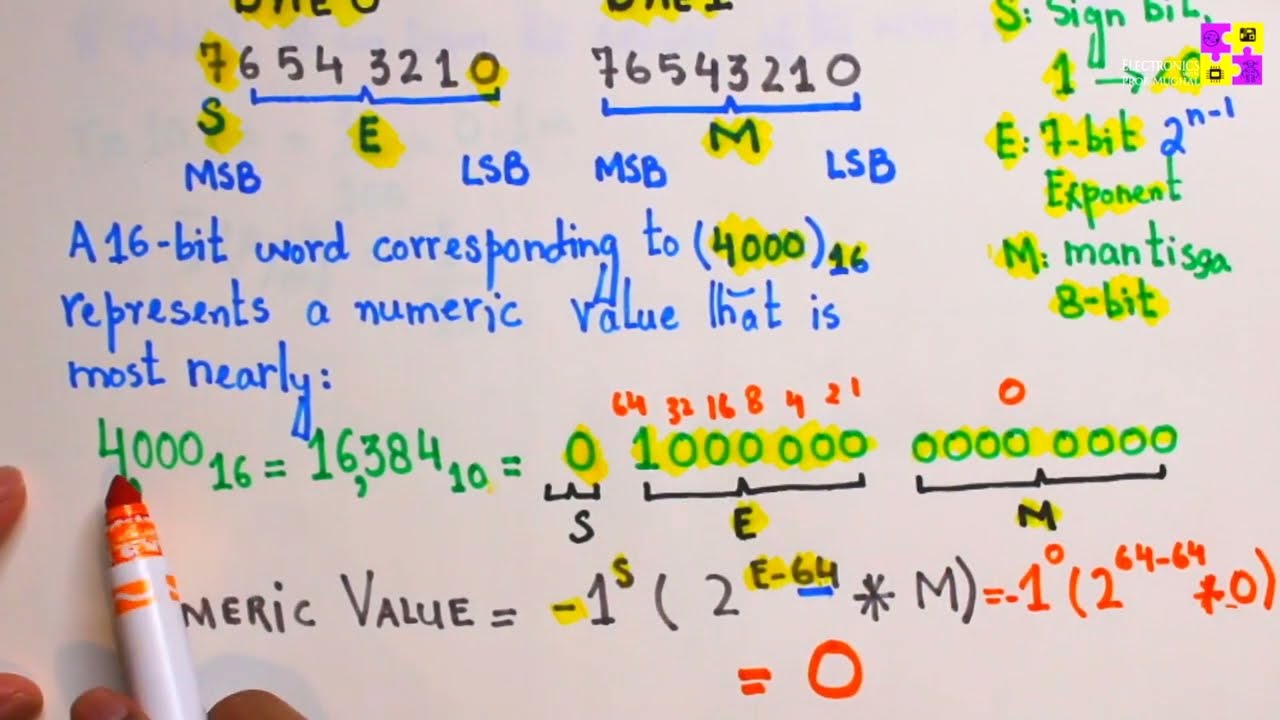 BYTE 0 BYTE 1
7 6 5 4 3 2 1 0 7 6 5 4 3 2 1 0
S E M
MSB LSB MSB LSB
S: Sign bit,
1 → , 0
E: 7-bit 2^n-1
Exponent
M: mantisga
8-bit
ELECTRONICS
PROF MUGHAL
A 16-bit word corresponding to (4000)16
represents a numeric value that is
most nearly:
64 32 16 8 4 2 1 0
4000 16 = 16,384 10 = 0 1000 000 0000 0000
S E M
MERIC VALUE = -1^S ( 2^E-64 * M) = -1^0 (2^64-64 * 0)
= 0